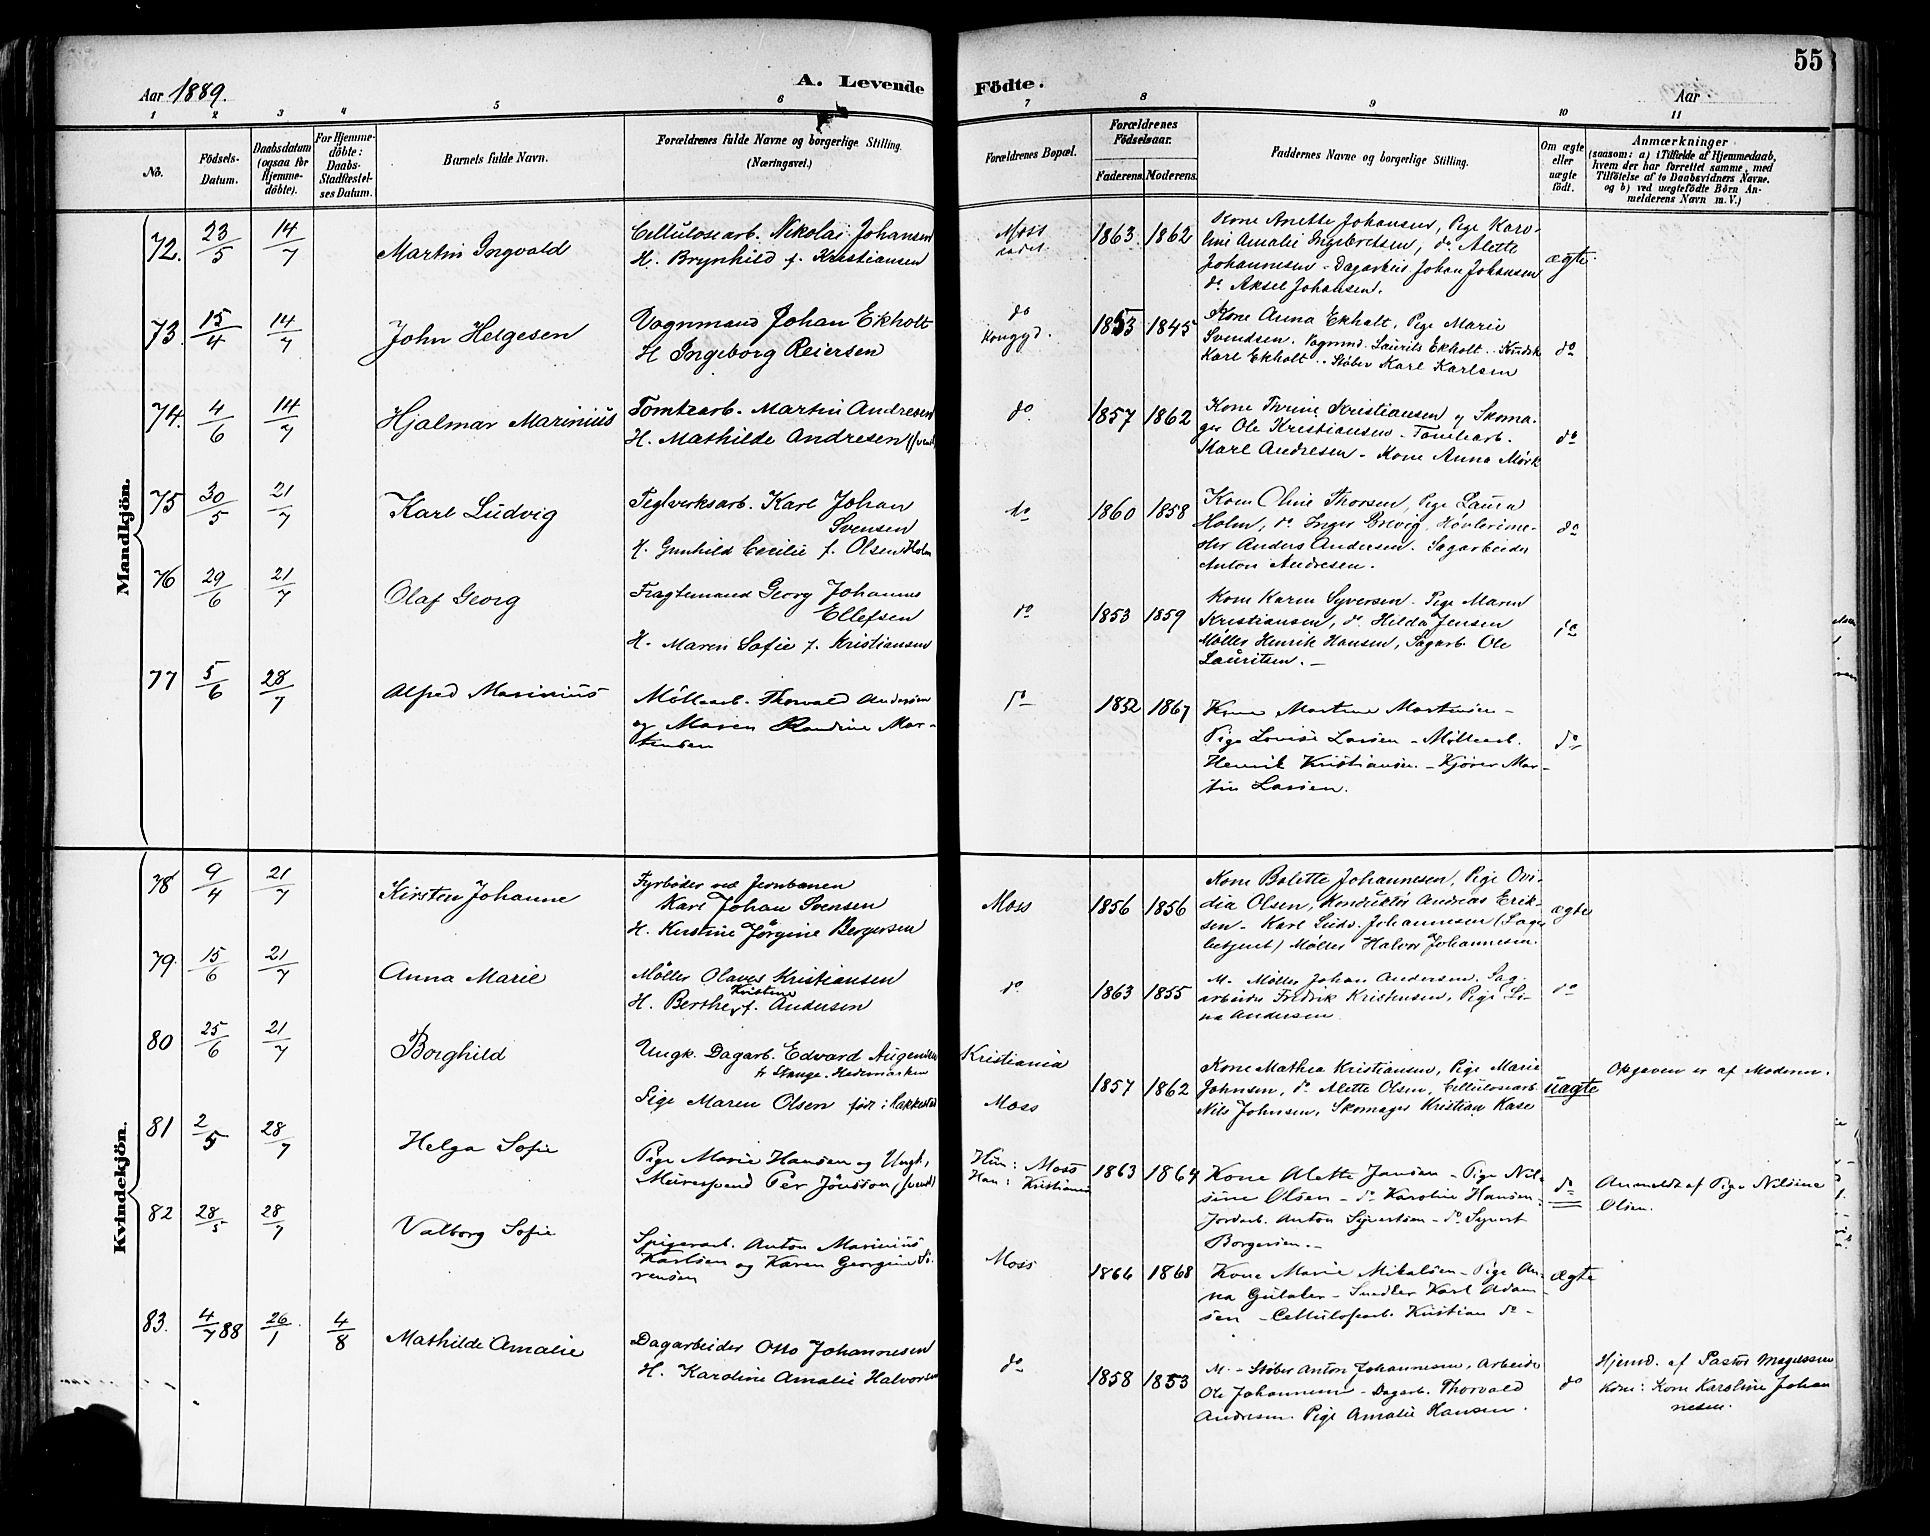 55
Aar 1889.
A. Levende Födte.
Aar
1 2 3 4 5 6 7 8 9 10 11
No.
Födsels-Datum.
Daabsdatum (ogsaa för Hjemmedöbte).
For Hjemmedöbte: Daabs-Stadfæstelses Datum.
Barnets fulde Navn.
Forældrenes fulde Navne og borgerlige Stilling. (Næringsvei.)
Forældrenes Bopæl.
Forældrenes Födselsaar.
Faderens. Moderens.
Faddernes Navne og borgerlige Stilling.
Om ægte eller uægte födt.
Anmærkninger
(saasom: a) i Tilfælde af Hjemmedaab, hvem der har forrettet samme, med Tilföielse af to Daabsvidners Navne. og b) ved uægtefödte Börn Anmelderens Navn m. V.)
Mandkjön.
72. 23/5 14/7 Martin Ingvald
Cellulosearb. Nikolai Johansen
H. Brynhild f. Kristiansen
Moss
1863. 1862
Kone Anette Johansen, Pige Karo-
line Amalie Ingebretsen, do Alette
Johannesen - Dagarbeid. Johan Johansen
do Aksel Johansen.
ægte
73. 15/4 14/7 John Helgesen
Vognmand Johan Ekholt
H Ingeborg Reiersen
do
1853 1845
Kone Anna Ekholt, Pige Marie
Svendsen. Vognmd. Laurits Ekholt..
Karl Ekholt.. Støber Karl Karlsen
do
74. 4/6 14/7 Hjalmar Marinius
Tomtearb. Martin Andresen
H. Mathilde Andresen (svensk)
do
1857 1862
Kone Thrine Kristiansen og Skoma-
ger Ole Kristiansen - Tomtearb.
Karl Andresen - Kone Anna Mørk
do
75 30/5 21/7 Karl Ludvig
Teglverksarb. Karl Johan
Svensen
H. Gunhild Cecilie f. Olsen Holm
do
1860 1858
Kone Oline Thorsen, Pige Laura
Holm, do Inger Brevig, Høvlerime-
ster Anders Andersen. Sagarbeider
Anton Andresen.
do
76 29/6 21/7 Olaf Georg
Fragtemand Georg Johannes
Ellefsen
H. Maren Sofie f. Kristiansen
do
1853 1859
Kone Karen Syversen. Pige Maren
Kristiansen, do Hilda Jensen
Møller Henrik Hansen, Sagarb. Ole
Lauritsen. -
do
77 5/6 28/7 Alfred Marinius
Møllearb. Thorvald Andersen
og Maren Randine Mar-
tinsen
do
1852 1867
Kone Martine Martinsen -
Pige Lovise Larsen - Møllearb.
Henrik Kristiansen. - Kjører Mar-
tin Larsen.
do
Kvindekjön.
78 9/4 21/7 Kirsten Johanne
Fyrbøder ved Jernbanen
Karl Johan Svensen
H. Kirstine Jørgine Bergersen
Moss
1856 1856
Kone Bolette Johannesen, Pige Ovi-
dia Olsen, Konduktør Andreas Erik-
sen - Karl Ludv. Johannesen (Sag-
betjent) Møller Halvor Johannesen.
ægte
79. 15/6 21/7 Anna Marie
Møller Olaves Kristiansen
Kristine
H. Berthe f. Andersen
do
1863 1855
M. - Møller Johan Andersen, Sag-
arbeider Fredrik Kristensen, Pige Li-
na Andersen
do
80 25/6 21/7 Borghild
Ungk. Dagarb. Edvard Augensen
fr Stange. Hedemarken
Pige Maren Olsen født i Rakkestad
Kristiania
Moss
1857 1862
Kone Mathea Kristiansen, Pige Marie
Johnsen, do Alette Olsen, Cellulosearb.
Nils Johnsen, Skomager Kristian Kase
uægte
Opgaven er af Moderen.
81 2/5 28/7 Helga Sofie
Pige Marie Hansen og Ungk.
Murersvend Per Jönsson (svensk)
Hun: Moss
Han: Kristiania
1863 1864
Kone Alette Jansen - Pige Nil-
sine Olsen - do Karoline Hansen -
Jordarb. Anton Syvertsen - do Syvert
Borgersen. -
do
Anmeldt af Pige Nilsine
Olsen.
82 28/5 28/7 Valborg Sofie
Spigerarb. Anton Marinius
Karlsen og Karen Georgine Sø-
rensen
Moss
1866 1868
Kone Marie Mikalsen - Pige An-
na Gulaker - Snedker Karl Adam-
sen - Cellulosearb. Kristian do -
ægte
83. 4/7 88 26/1 4/8 Mathilde Amalie
Dagarbeider Otto Johannesen
H. Karoline Amalie Halvorsen
do
1858 1853
M. - Støber Anton Johannesen, Arbeider
Ole Johannesen - Dagarb. Thorvald
Andresen. Pige Amalie Hansen.
do
Hjemd. af Pastor Magelssen
Kone Karoline Johan
nesen.